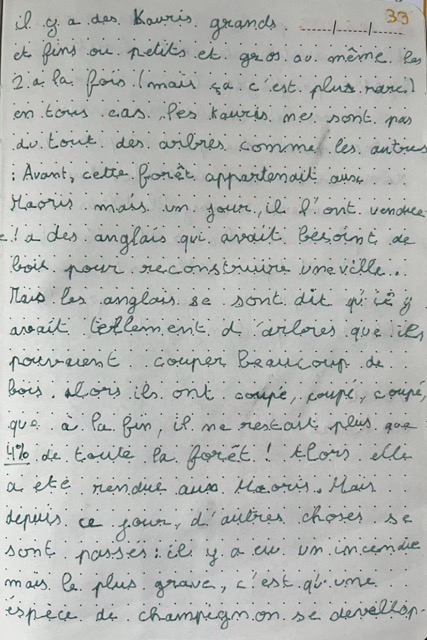 33
il y a des Kauris grands ...../..../....
et fins ou petits et gros au même les
2 à la fois (mais ça c'est plus rare)
en tous cas les Kauris ne sont pas
du tout des arbres comme les autres
: Avant, cette forêt appartenait aux
Maoris mais un jour, il l'ont vendue
! a des anglais qui avait besoint de
bois pour reconstruire une ville.
Mais les anglais se sont dit qu'il y
avait tellement d'arbres que ils
pouvaient couper beaucoup de
bois. Alors ils ont coupé, coupé, coupé,
que à la fin, il ne restait plus que
4% de toute la forêt! Alors elle
a eté rendue aux Maoris. Mais
depuis ce jour, d'autres choses se
sont passés: il y a eu un incendie
mais le plus grave, c'est qu'une
espèce de champignon se devellop-